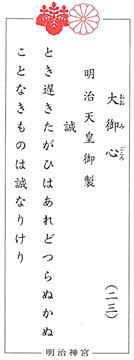 大御心（二三）
おおみごころ
明治天皇御製
誠
とき遅きたがひはあれどつらぬかぬ
ことなきものは誠なりけり
明治神宮